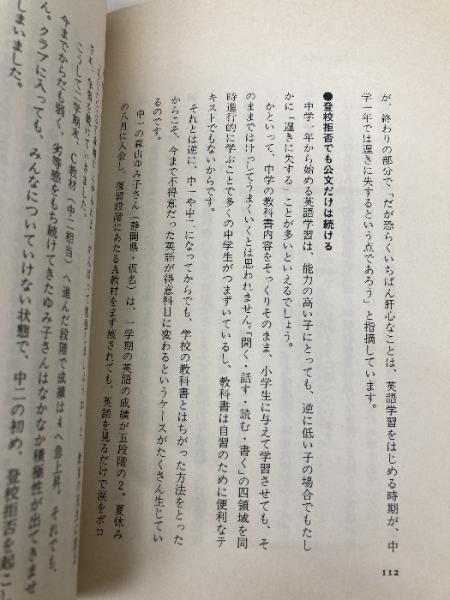 が、終わりの部分で「だが恐らくいちばん肝心なことは、英語学習をはじめる時期が、中
学一年では遅きに失するという点であろう」と指摘しています。
●登校拒否でも公文だけは続ける
中学一年から始める英語学習は、能力の高い子にとっても、逆に低い子の場合でもたし
かに「遅きに失する」ことが多いといえるでしょう。
かといって、中学の教科書内容をそっくりそのまま、小学生に与えて学習させても、そ
のままではけっしてうまくいくとは思われません。「聞く・話す・読む・書く」の四領域を同
時進行的に学ぶことで多くの中学生がつまずいているし、教科書は自習のために便利なテ
キストでもないからです。
それとは逆に、中一や中二になってからでも、学校の教科書とはちがった方法をとった
からこそ、今まで不得意だった英語が得意科目に変わるというケースがたくさん生じてい
るのです。
中一の森山ゆみ子さん（静岡県・仮名）は、一学期の英語の成績が五段階の2。夏休み
の八月に入会し、復習段階にあたるA教材をまず渡されても、英語を見るだけで涙をポロ
こうして二学期末、C教材（中一相当）へ進んだ段階で成績は4へ急上昇。それでも、
今までからだも弱く、劣等感をもち続けてきたゆみ子さんはなかなか積極性が出てきませ
ん。クラブに入っても、みんなについていけない状態で、中二の初め、登校拒否を起こし
しまいました。
112